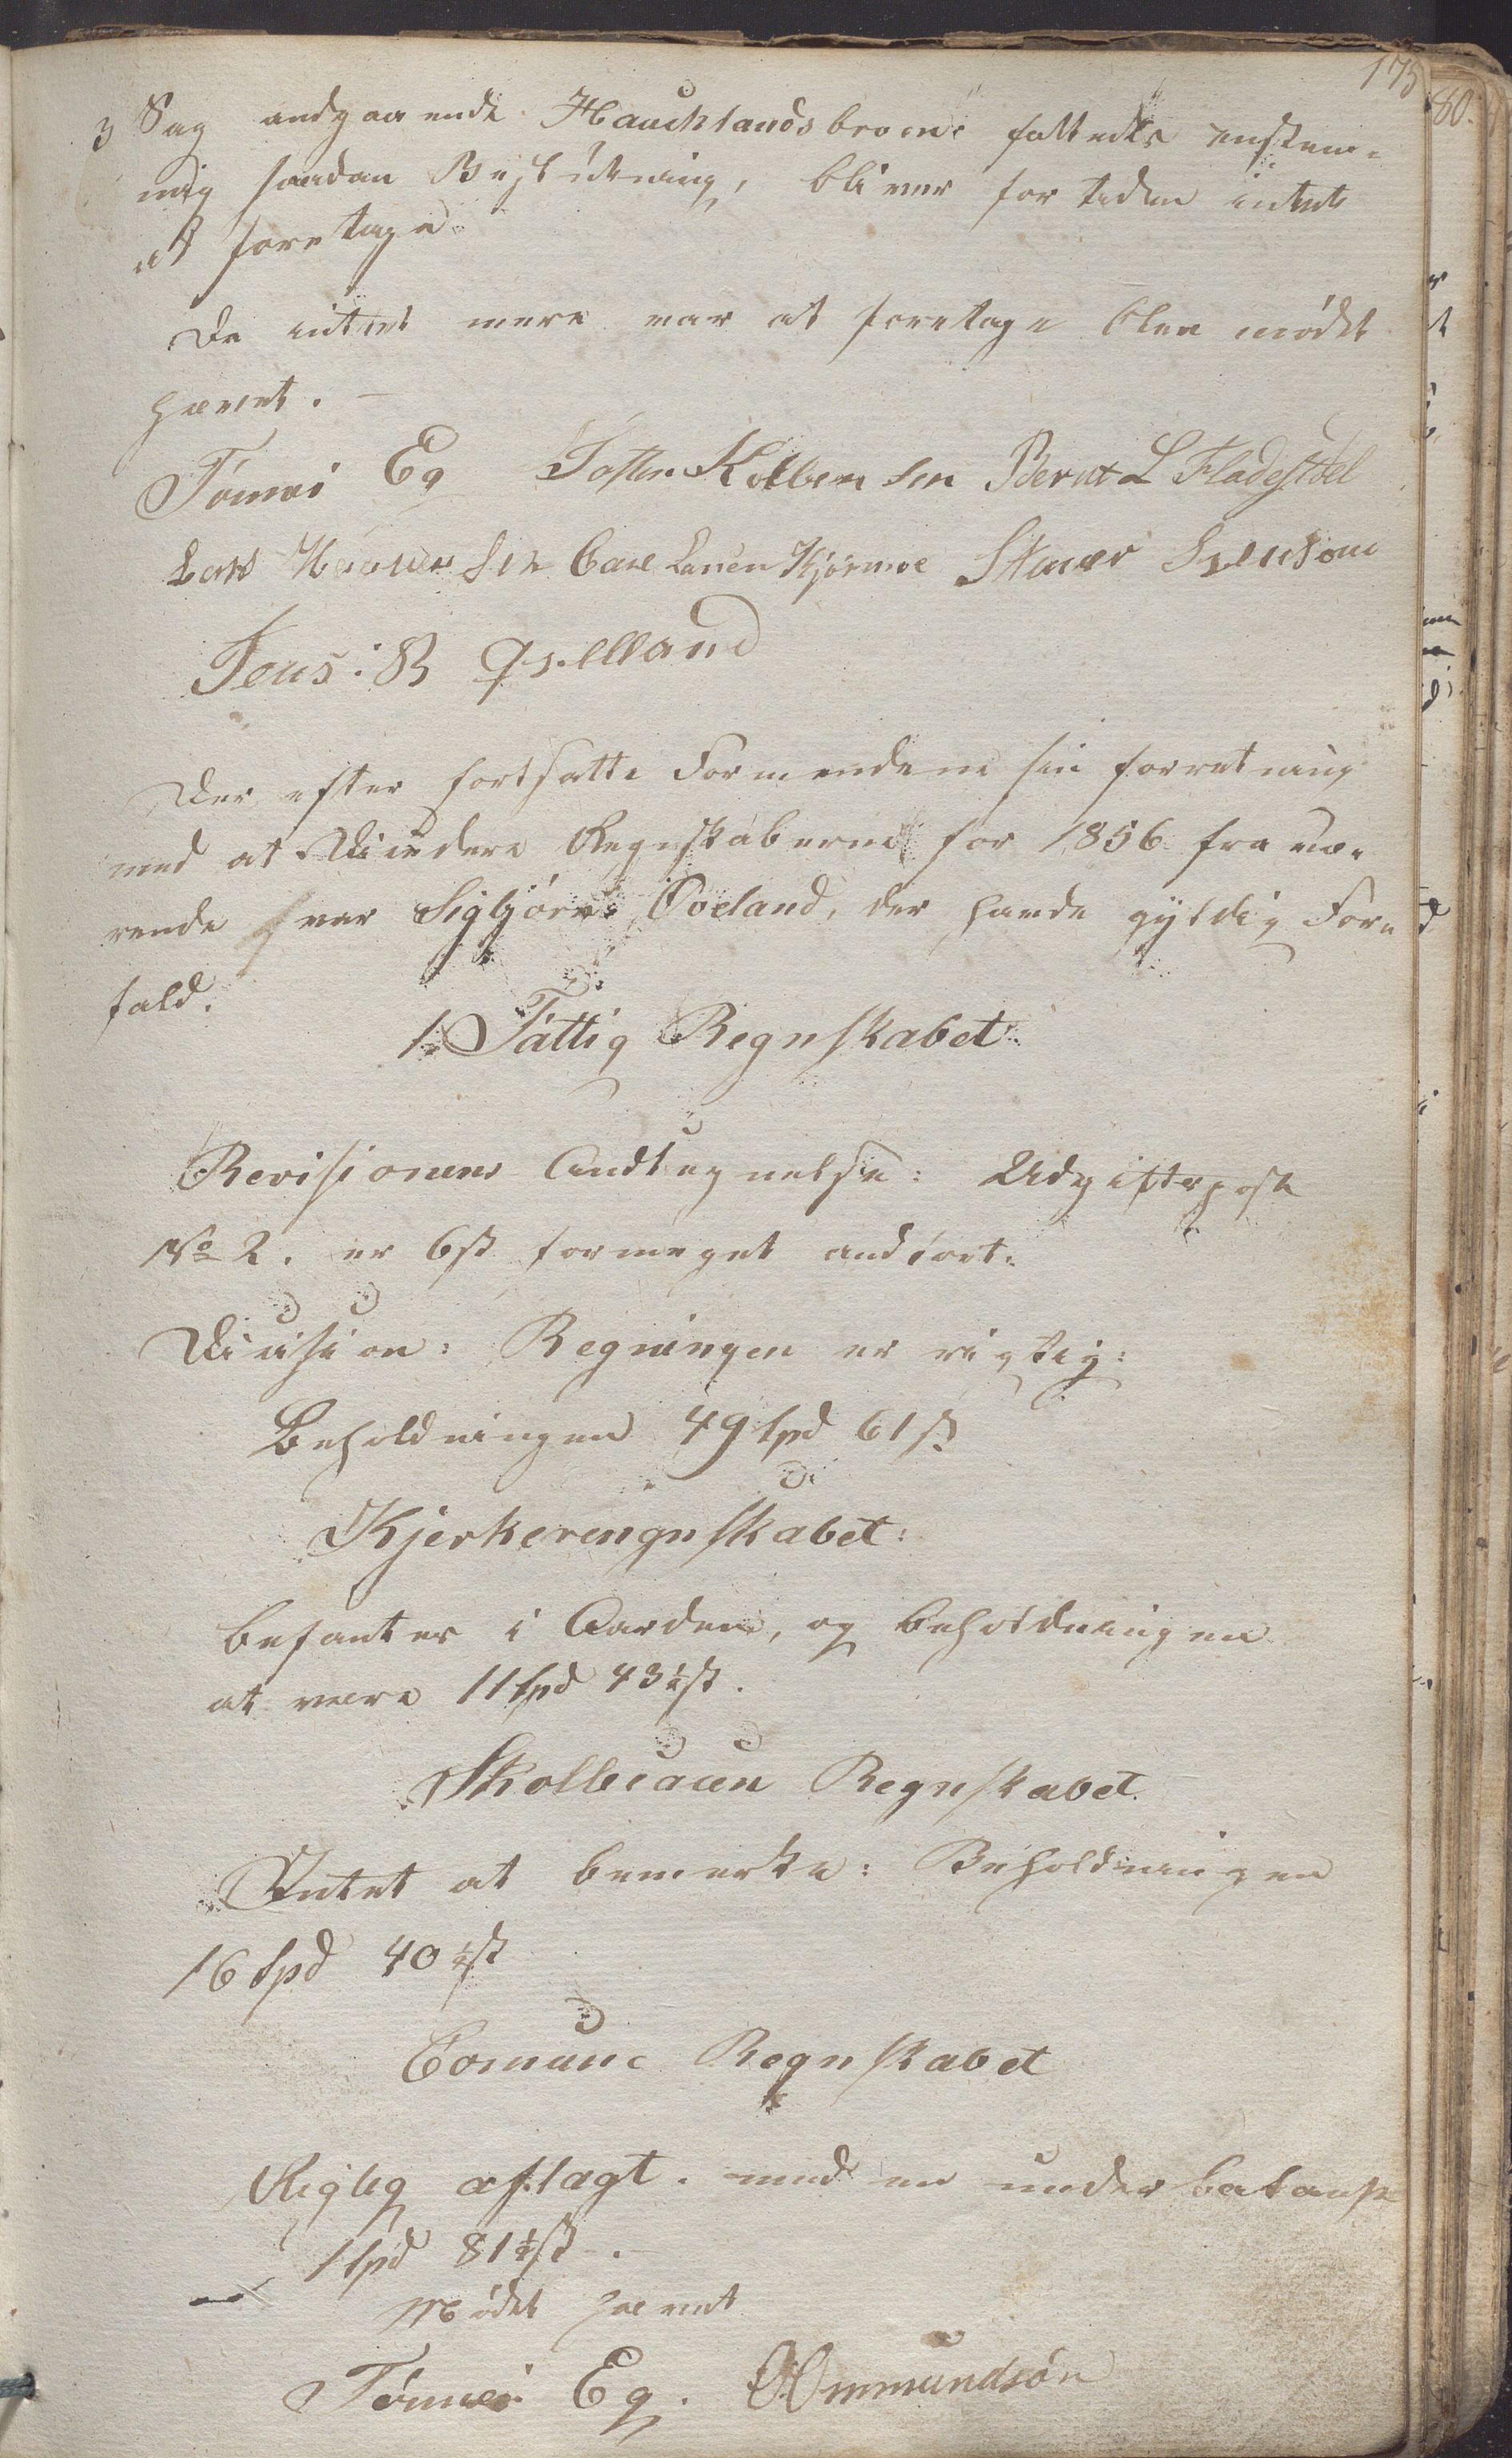 175
3 Sag andgaaende Haucklandsbroen: fattedes enstem-
mig saadan Beslutning, bliver for tiden intet
at foretage
Da intet mere var at foretage blev mødet
hævet. —
Tørres Eg Tosten Kolbensen Berut L Fladestøl
Lars Carl Larsen Kjørmoe Stener Svendsøn
Jens: B Qvelland
Der efter fortsatte Formendene sin forretning
med at Deisidere Regnskaberne for 1856 fra væ-
rende hver Sigbjørn Øveland, der havde gyldig For-
fald.
1. Fattig Regnskabet
Revisionens Andtegnelse: Udgiftspost
No 2. er 6 ß formeget andført.
Dicision: Regningen er rigtig:
Beholdningen 49 Spd 61 ß
Kjerkerengnskabet:
befantes i Aarden, og beholdningen
at være 11 Spd 43½ ß.
Skolleiacen Regnskabet.
Intet at bemerke: Beholdningen
16 Spd 40½ ß
Comune Regnskabet
Rigtig aflagt. med en underbalanse
1 Spd 81½ ß.
Mødet hævet
Tørres Eg. Ommundsøn